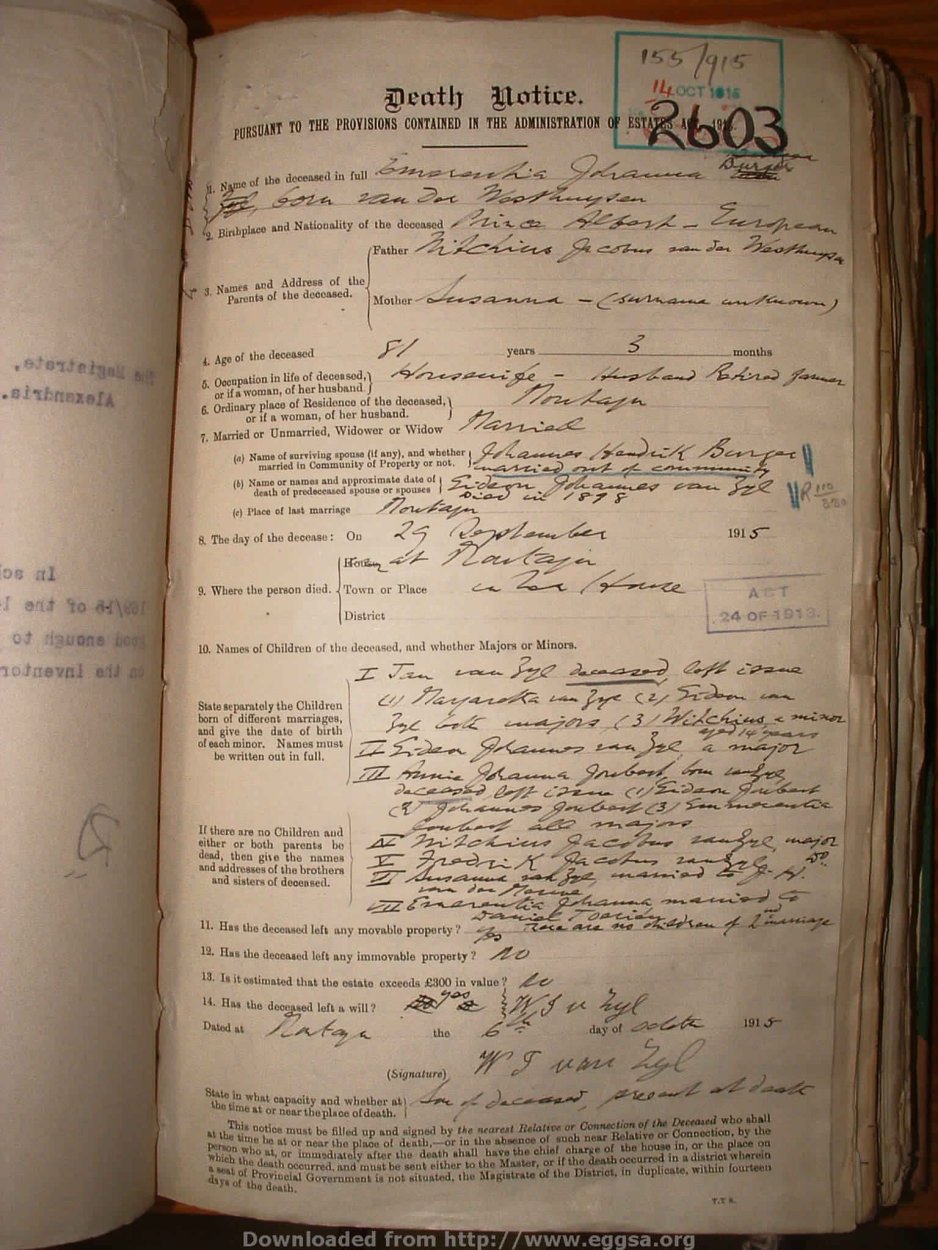 155/915
14 OCT 1915
2603
Death Notice.
PURSUANT TO THE PROVISIONS CONTAINED IN THE ADMINISTRATION OF ESTATES ACT, 1913.
1. Name of the deceased in full Emerentia Johanna Burger
born van der Westhuysen
2. Birthplace and Nationality of the deceased Prince Albert - European
3. Names and Address of the Parents of the deceased.
Father Nitchius Jacobus van der Westhuysen
Mother Susanna - (surname unknown)
4. Age of the deceased 81 years 3 months
5. Occupation in life of deceased, or if a woman, of her husband Housewife - Husband Retired farmer
6. Ordinary place of Residence of the deceased, or if a woman, of her husband.
7. Married or Unmarried, Widower or Widow Married
(a) Name of surviving spouse (if any), and whether married in Community of Property or not. Johannes Hendrik Burger
married out of community
(b) Name or names and approximate date of death of predeceased spouse or spouses Gideon Johannes van Zyl
Died in 1898
(c) Place of last marriage
8. The day of the decease: On 29 September 1915
9. Where the person died.
House, at
Town or Place in the House
District
ACT
24 OF 1913.
10. Names of Children of the deceased, and whether Majors or Minors.
State separately the Children
born of different marriages,
and give the date of birth
of each minor. Names must
be written out in full.
I Jan van Zyl deceased, left issue
(1) Margaretha van Zyl (2) Gideon van
Zyl both majors (3) Nitchius, a minor
aged 14 years
II Gideon Johannes van Zyl a major
III Annie Johanna Joubert, born van Zyl
deceased left issue (1) Gideon Joubert
(2) Johannes Joubert (3) Emmerentia
Joubert all majors
If there are no Children and
either or both parents be
dead, then give the names
and addresses of the brothers
and sisters of deceased.
IV Nitchius Jacobus van Zyl, major
V Fredrik Jacobus van Zyl, do.
VI Susanna van Zyl, married to J. H.
van der Merwe
VII Emerentia Johanna, married to
Daniel
There are no children of 2nd marriage
11. Has the deceased left any movable property? yes
12. Has the deceased left any immovable property? No
13. Is it estimated that the estate exceeds £300 in value? No
14. Has the deceased left a will? yes W J v Zyl
Dated at the 6th day of October 1915
(Signature) W J van Zyl
State in what capacity and whether at the time at or near the place of death. Son of deceased, present at death
This notice must be filled up and signed by the nearest Relative or Connection of the Deceased who shall
at the time be at or near the place of death,—or in the absence of such near Relative or Connection, by the
person who at, or immediately after the death shall have the chief charge of the house in, or the place on
which the death occurred, and must be sent either to the Master, or if the death occurred in a district wherein
a seat of Provincial Government is not situated, the Magistrate of the District, in duplicate, within fourteen
days of the death.
T.T R.
The Magistrate,
Alexandria.
Downloaded from http://www.eggsa.org